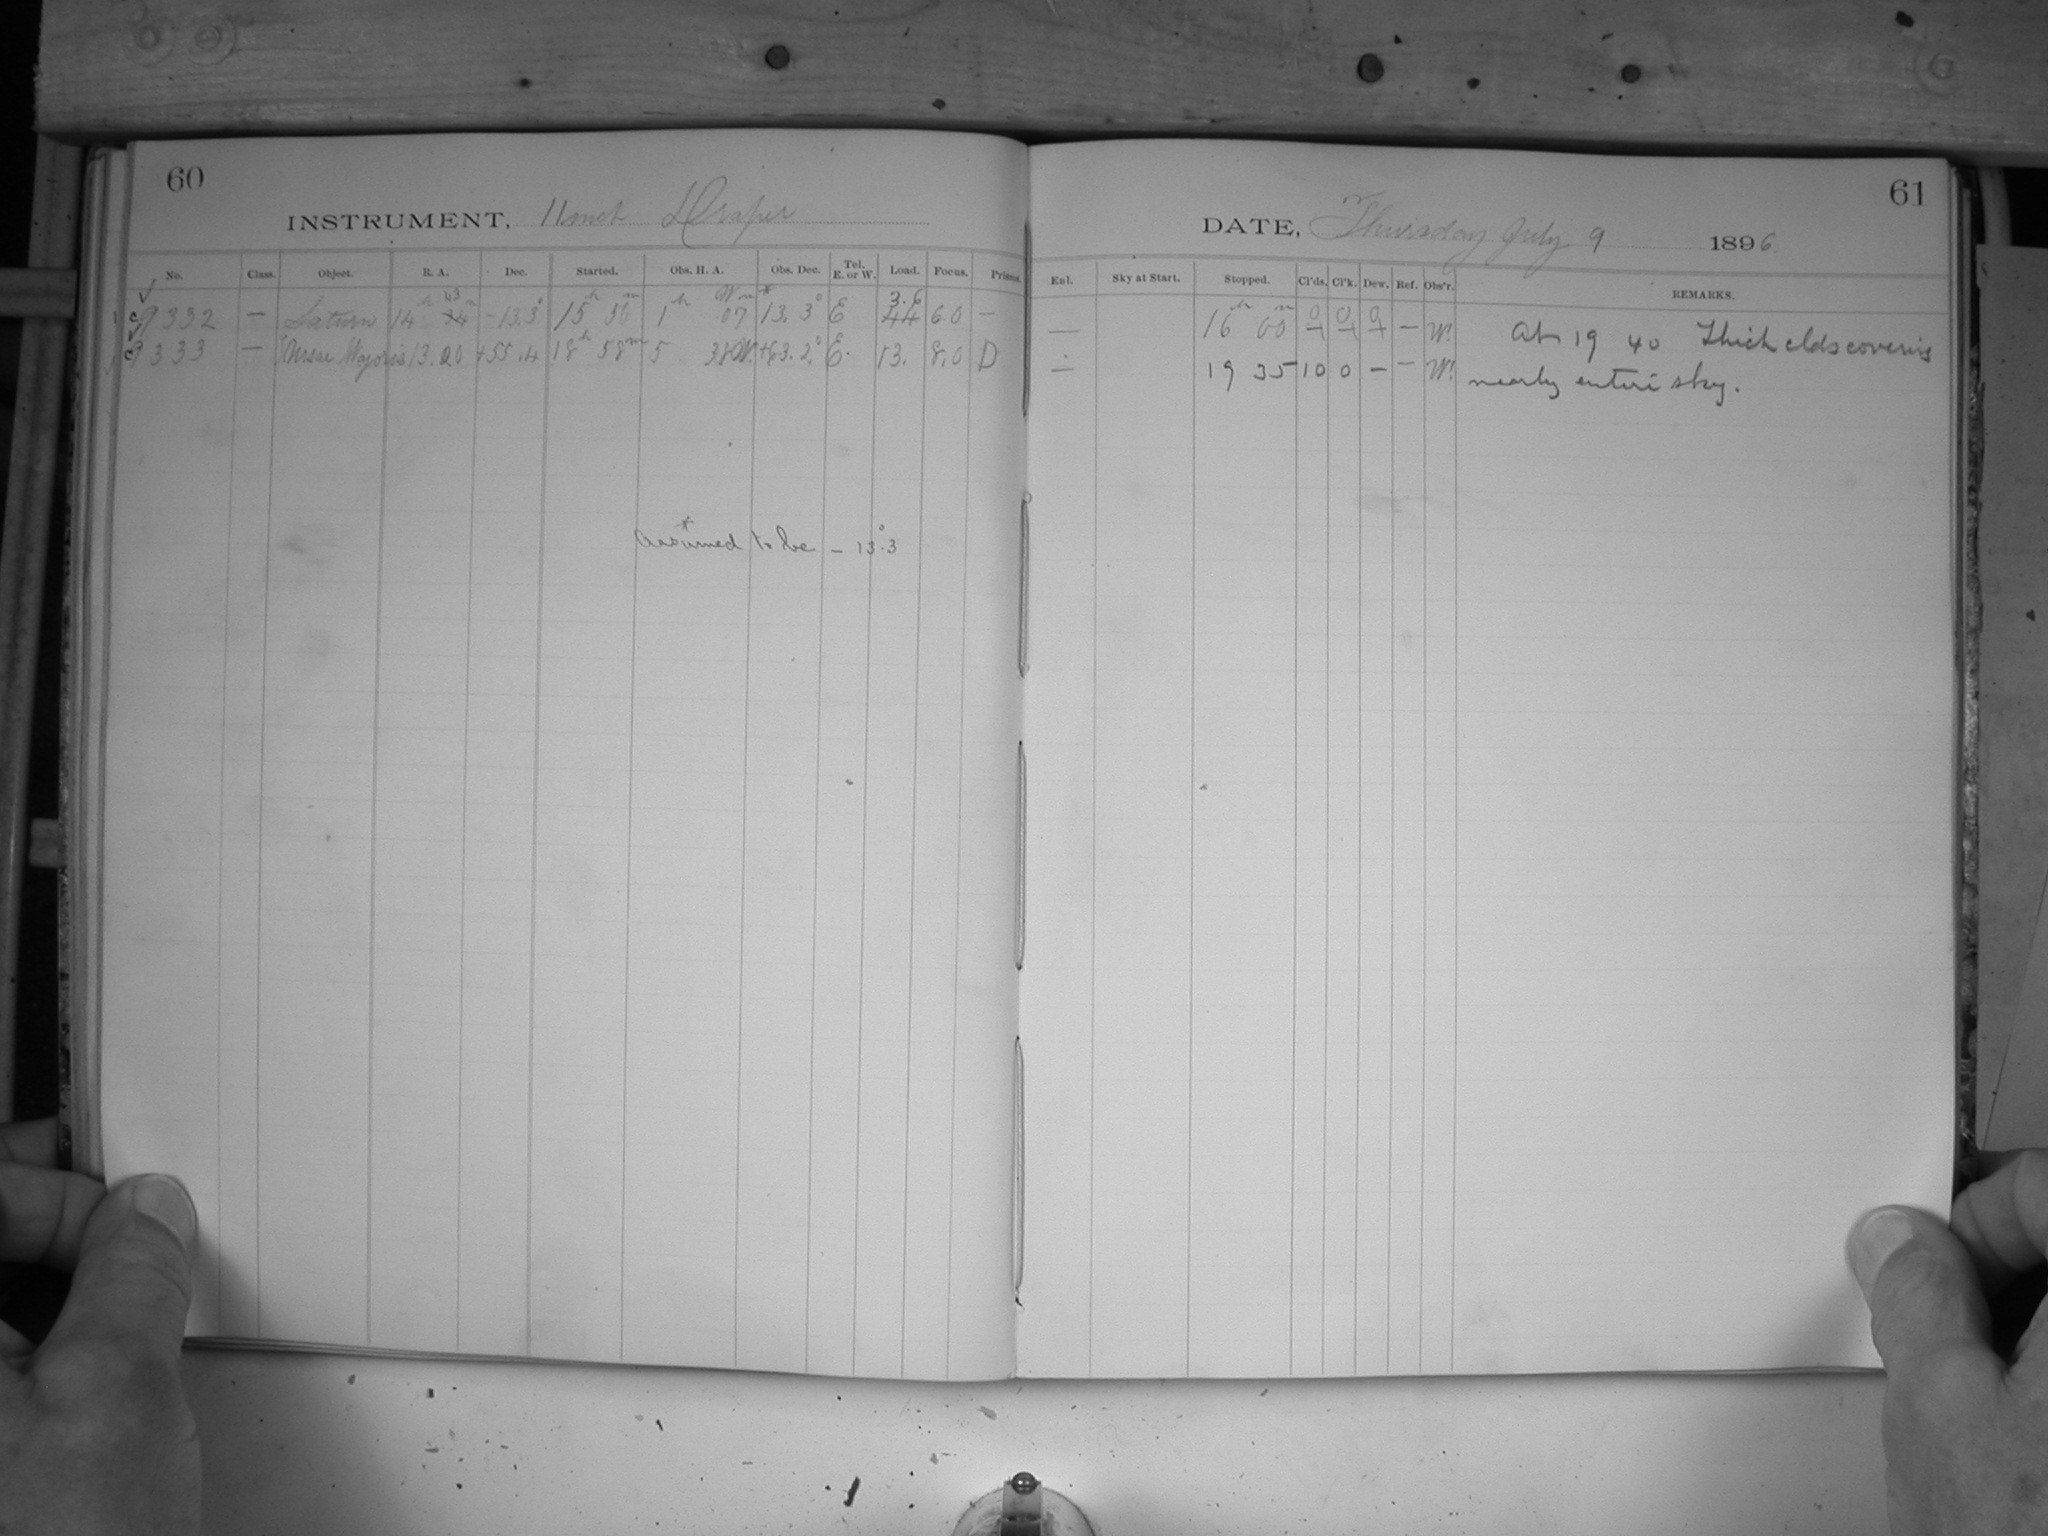 60
INSTRUMENT, 11 inch Draper
No. Class. Object. R. A. Dec. Started. Obs. H. A. Obs. Dec. Tel. E. or W. Load. Focus. Prisms.
c9332 — Saturn 14h 34 43m -13.3° 15h 56m 1h 07m W* 13.3° E 44 3.6 6.0 —
c9333 — ζ Ursae Majoris 13.20 +55.4 18h 58m 5 38W. +63.2° E. 13. 8.0 D
*
Assumed to be — 13.°3
61
DATE, Thursday July 9 1896
Enl. Sky at Start. Stopped. Cl'ds. Cl'k. Dew. Ref. Obs'r. REMARKS.
— 16h 00m 0 0 0 — W. At 19 40 Thick clds covering
— 19 35 10 0 — — W. nearly entire sky.